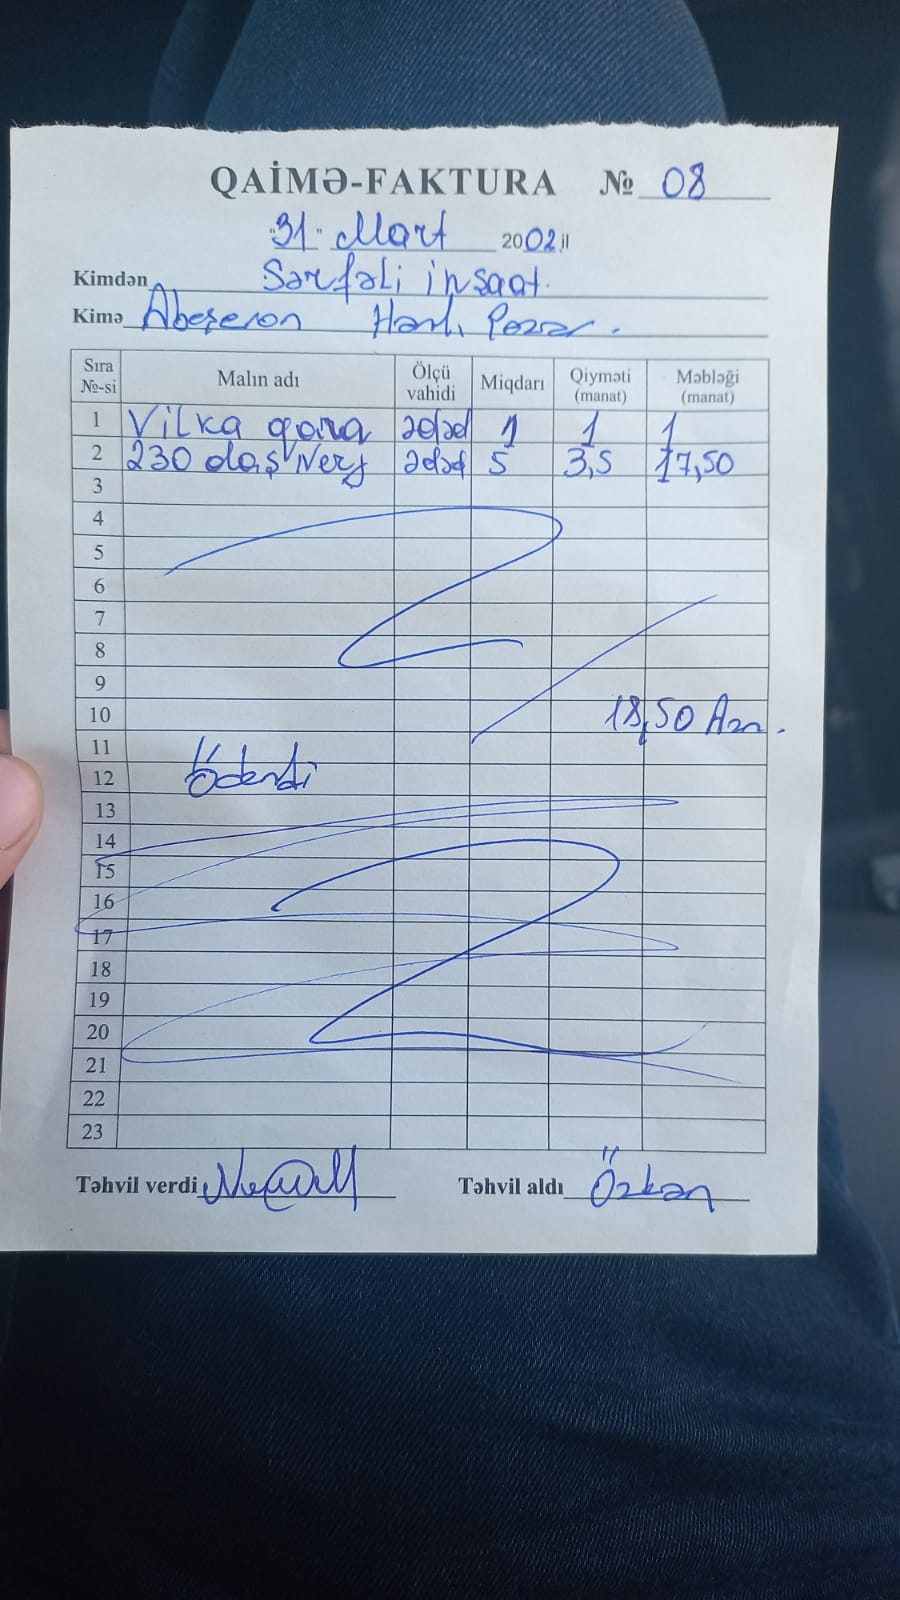 QAİMƏ-FAKTURA № 08
"31" Mart 2002 il
Kimdən Sərfəli inşaat.
Kimə Abeşeron Pazar.
Sıra №-si Malın adı Ölçü vahidi Miqdarı Qiyməti (manat) Məbləği (manat)
1 Vilka qara ədəd 1 1 1
2 230 daş Nerj ədəd 5 3,5 17,50
3
4
5
6
7
8
9
10 18,50 Azn.
11
12 Ödendi
13
14
15
16
17
18
19
20
21
22
23
Təhvil verdi Təhvil aldı Özkan